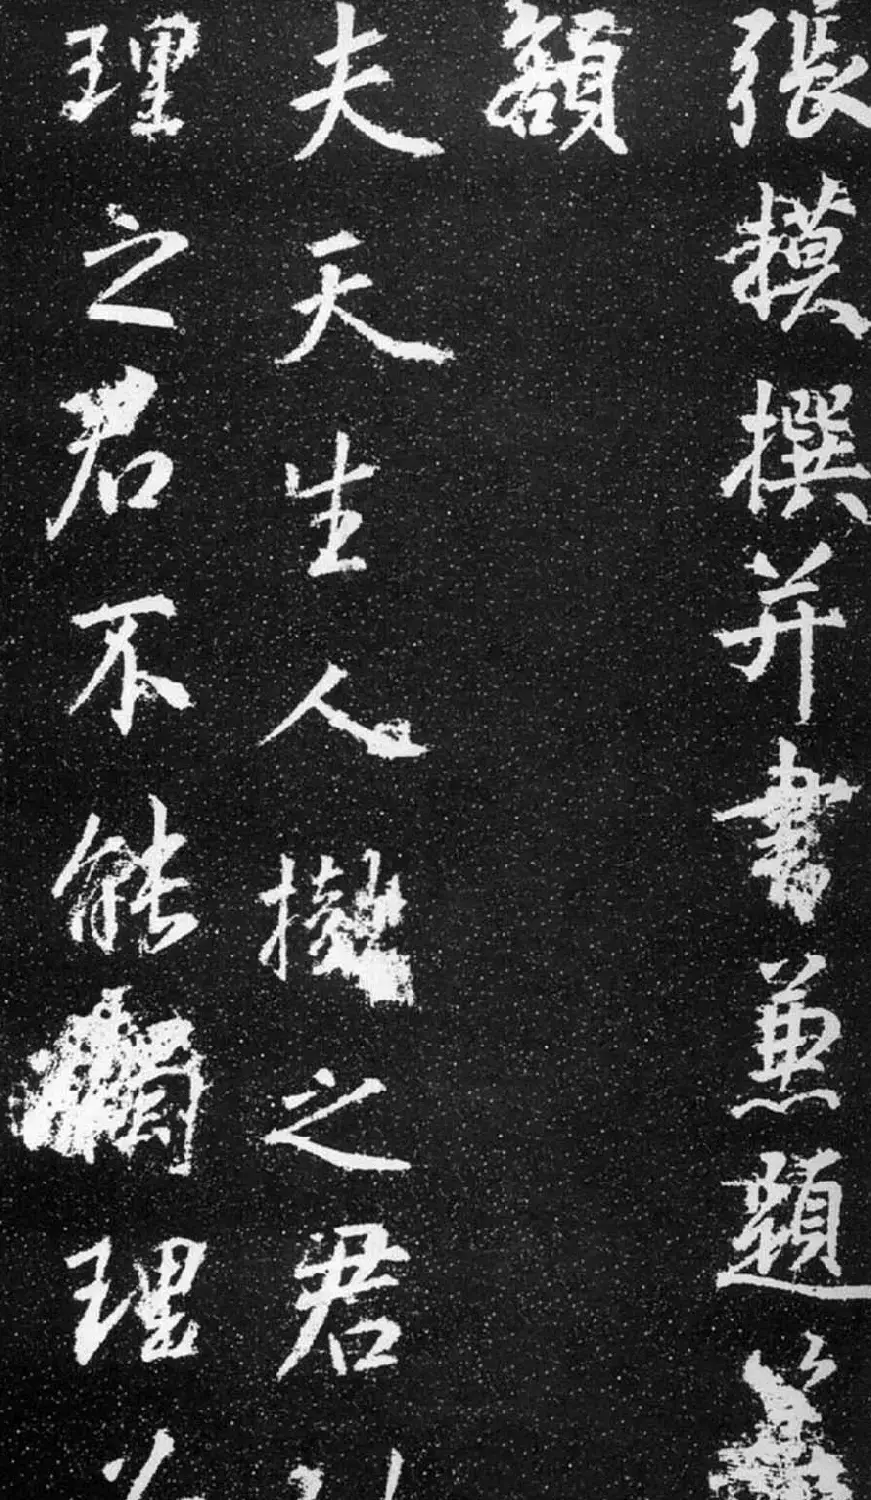 張模撰并書兼題篆
額
夫天生人樹之君以
理之君不能獨理